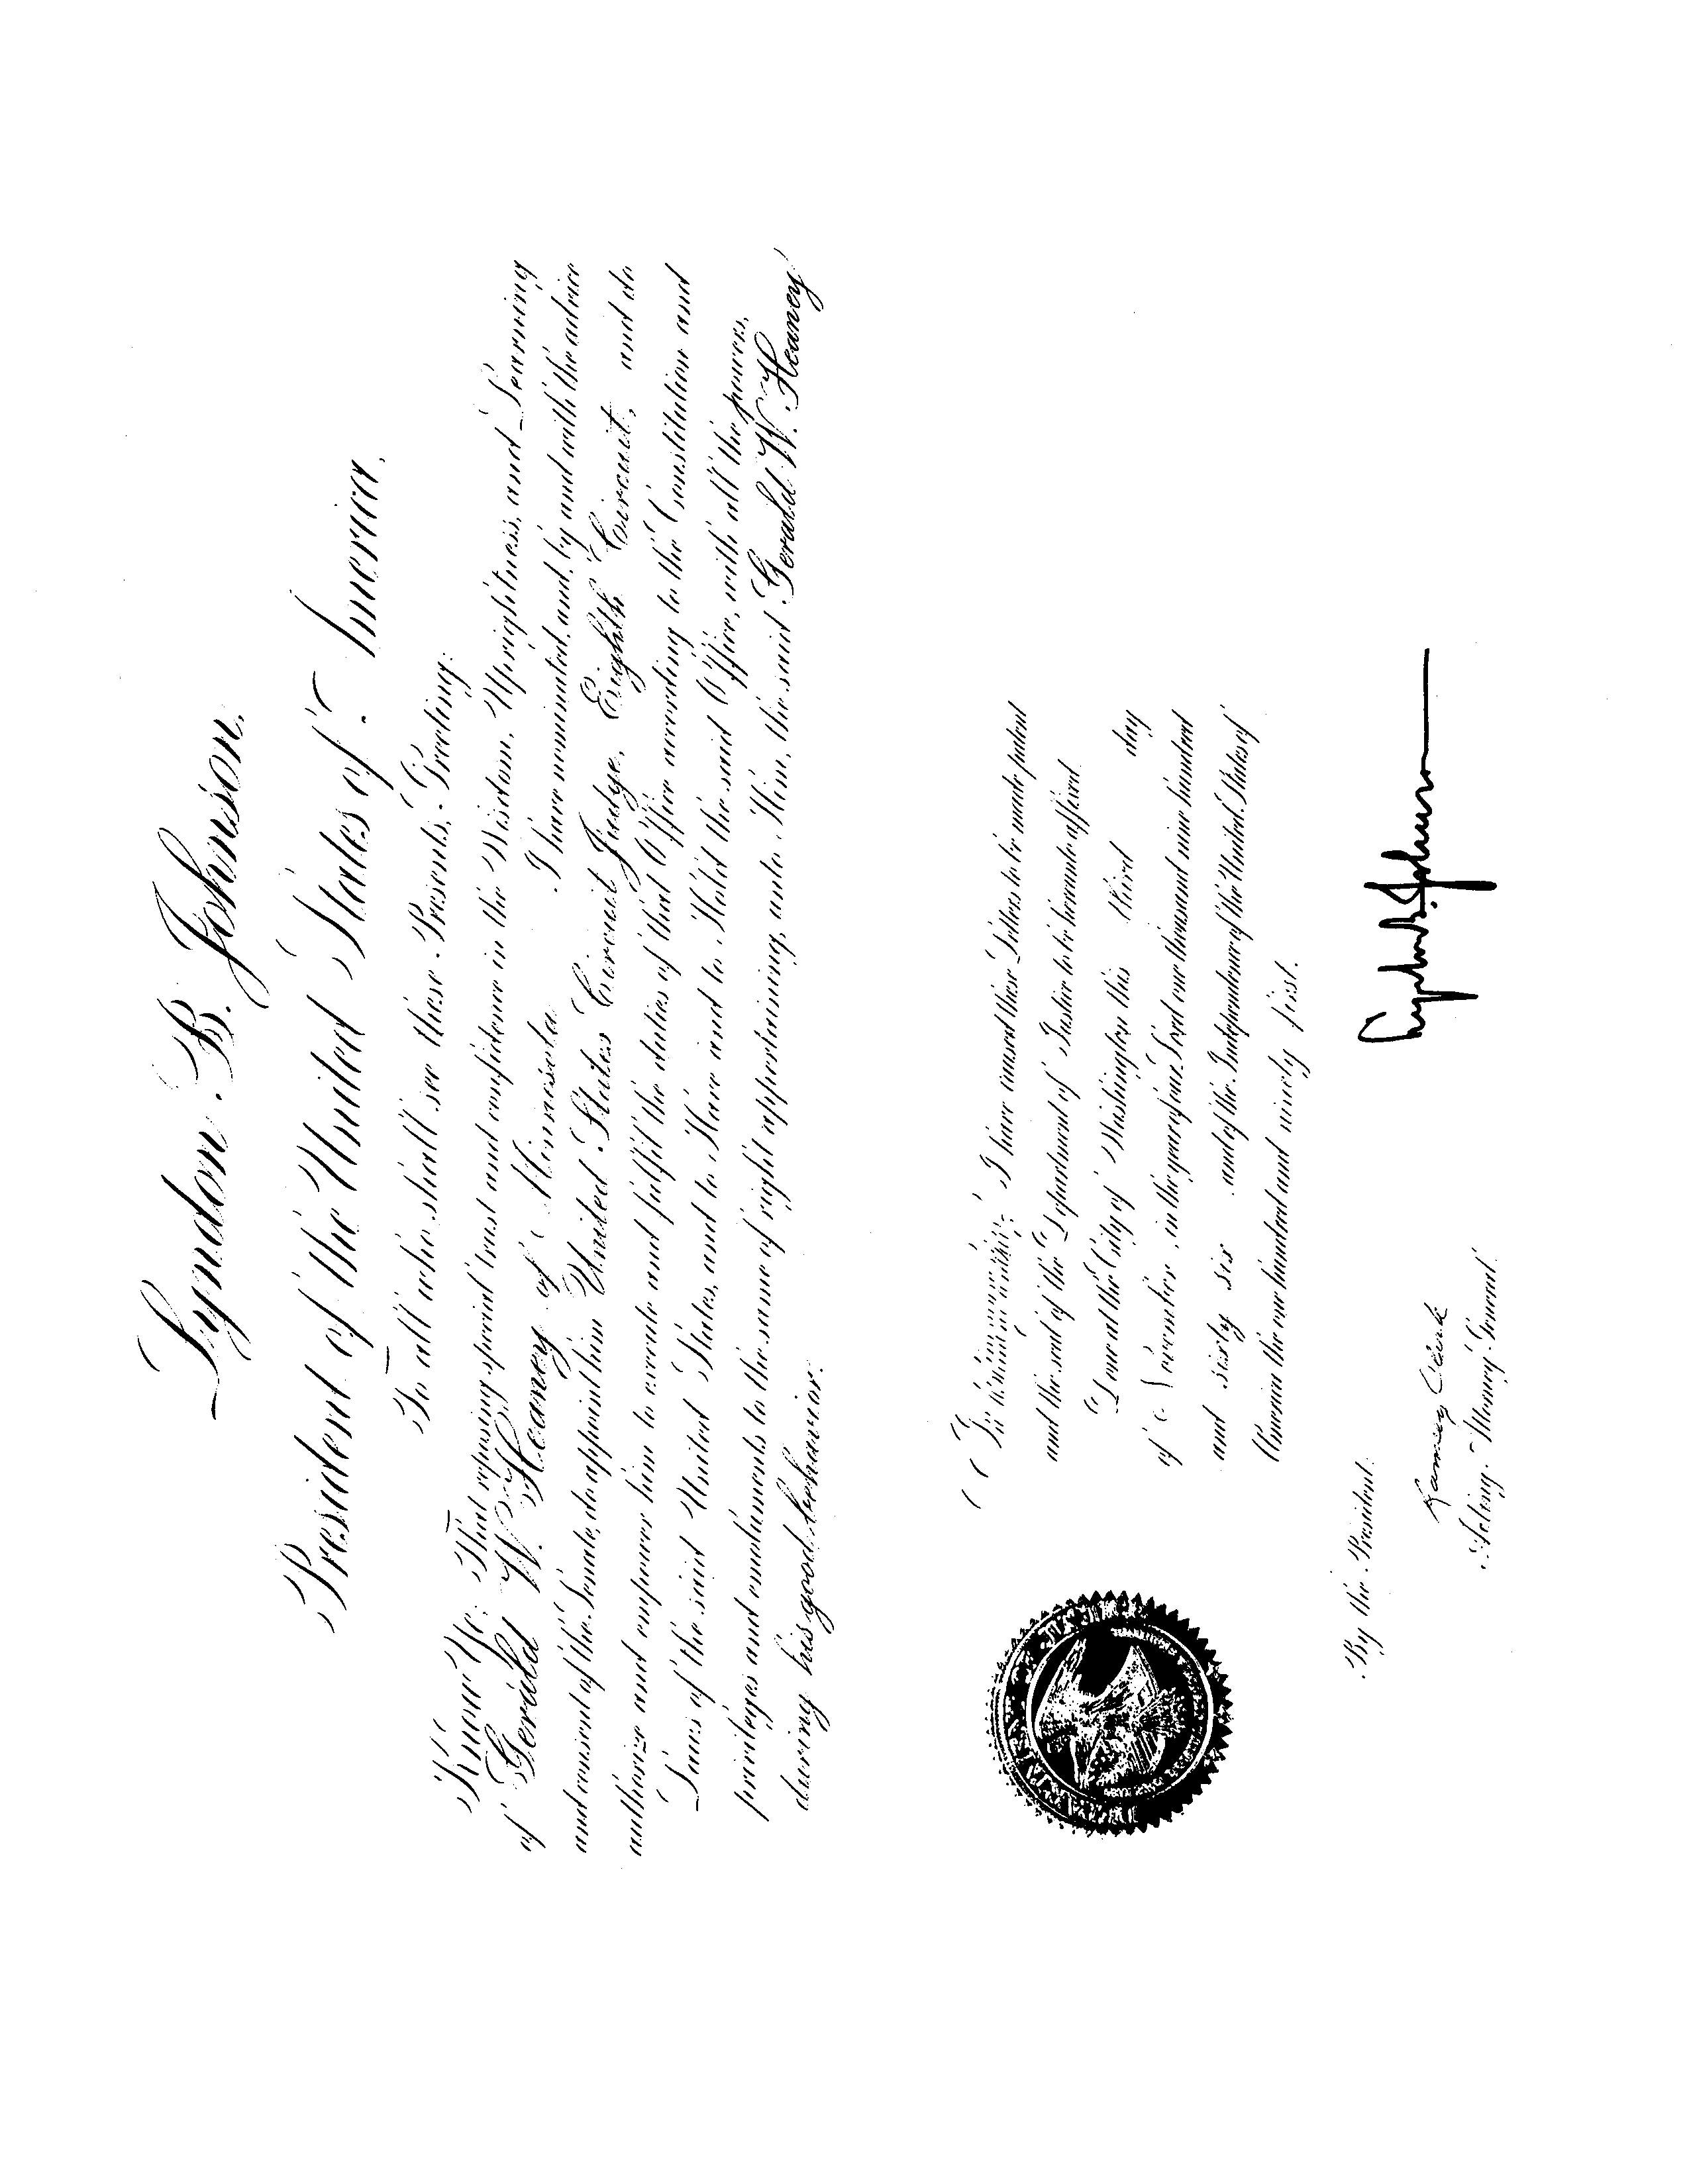 Lyndon B. Johnson,
President of the United States of America,
To all who shall see these Presents, Greeting:
Know Ye; That reposing special trust and confidence in the Wisdom, Uprightness, and Learning
of Gerald W. Heaney of Minnesota I have nominated, and, by and with the advice
and consent of the Senate, do appoint him United States Circuit Judge, Eighth Circuit, and do
authorize and empower him to execute and fulfil the duties of that Office according to the Constitution and
Laws of the said United States, and to Have and to Hold the said Office, with all the powers,
privileges and emoluments to the same of right appertaining, unto Him, the said Gerald W. Heaney
during his good behavior.
In testimony whereof, I have caused these Letters to be made patent
and the seal of the Department of Justice to be hereunto affixed.
Done at the City of Washington this third day
of November, in the year of our Lord one thousand nine hundred
and sixty six and of the Independence of the United States of
America the one hundred and ninety first.
Lyndon B. Johnson
By the President:
Ramsey Clark
Acting Attorney General.